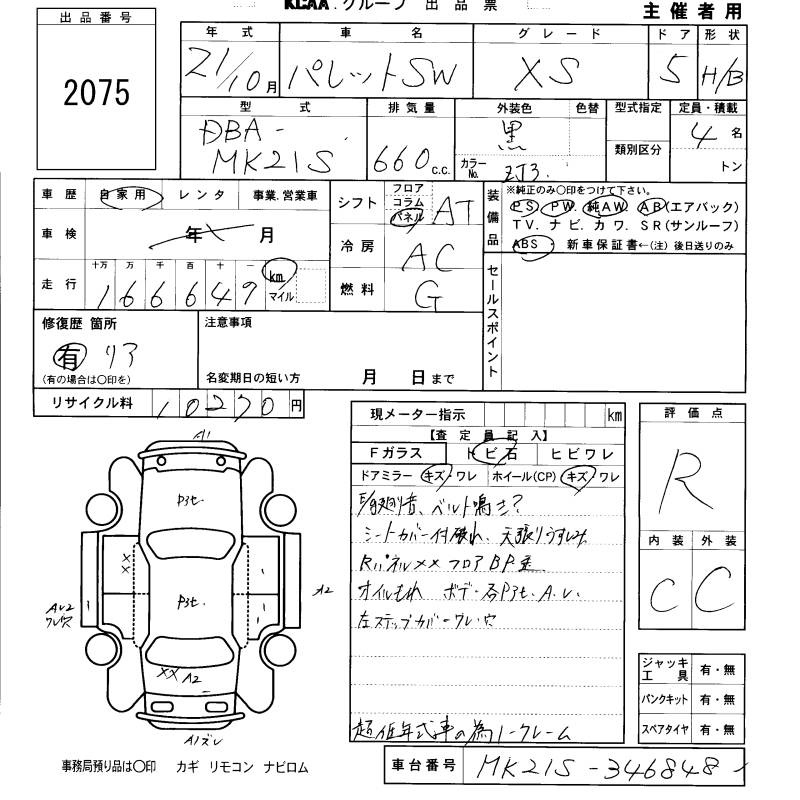 KCAA グループ 出 品 票
主 催 者 用
出 品 番 号
2075
年 式 車 名 グ レ ー ド ド ア 形 状
21/10月 パレットSW XS 5 H/B
型 式 排 気 量 外装色 色替 型式指定 定員・積載
DBA-
MK21S
660 c.c.
黒
カラーNo. ZJ3
類別区分
4 名
トン
車 歴 自 家 用 レ ン タ 事業.営業車
車 検 年 月
走 行 十万 万 千 百 十 一
166649 km マイル
シフト フロア コラム パネル AT
冷 房 AC
燃 料 G
装備品
※純正のみ〇印をつけて下さい。
PS PW. 純AW. AB(エアバック)
TV. ナ ビ. カ ワ. SR(サンルーフ)
ABS 新 車 保 証 書←(注) 後日送りのみ
セールスポイント
修復歴 箇所
有 リア
(有の場合は〇印を)
注意事項
名変期日の短い方 月 日 まで
リサイクル料 10270 円
現メーター指示 km
【査 定 員 記 入】
F ガラス ト ビ 石 ヒ ビ ワ レ
ドアミラー キズ・ワレ ホイール(CP) キズ・ワレ
ベルト鳴き?
シートカバー付 破れ、天張りうすしみ
Rパネル××フロアBP歪
オイルもれ ボデー各P3t. A.U.
左ステップカバーワレ・穴
超低年式車の為ノークレーム
評 価 点
R
内 装 外 装
C C
ジャッキ 工 具 有・無
パンクキット 有・無
スペアタイヤ 有・無
A1
P3t.
××
P3t.
A2
AU2
ワレ穴
×× A2
A1ズレ
事務局預り品は〇印 カギ リモコン ナビロム
車台番号 MK21S-346848